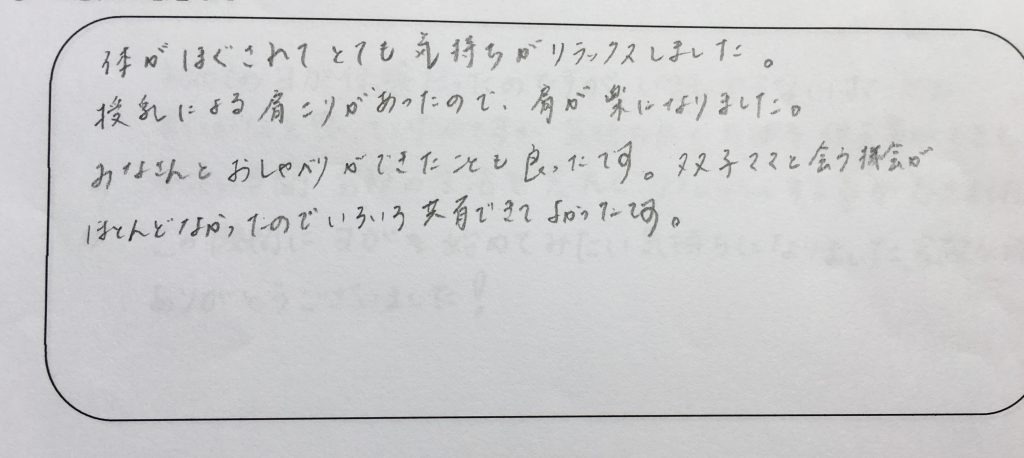 体がほぐされてとても気持ちがリラックスしました。
授乳による肩こりがあったので、肩が楽になりました。
みなさんとおしゃべりができたことも良ったです。双子ママと会う機会が
ほとんどなかったのでいろいろ共有できてよかったです。